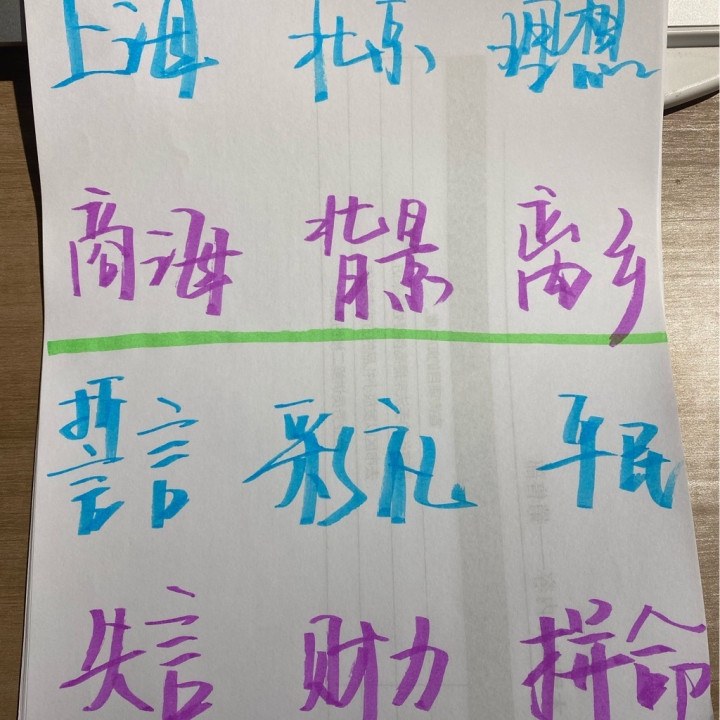 上海 北京 理想
商海 背景 离乡
誓言 彩礼 平民
失言 财力 拼命